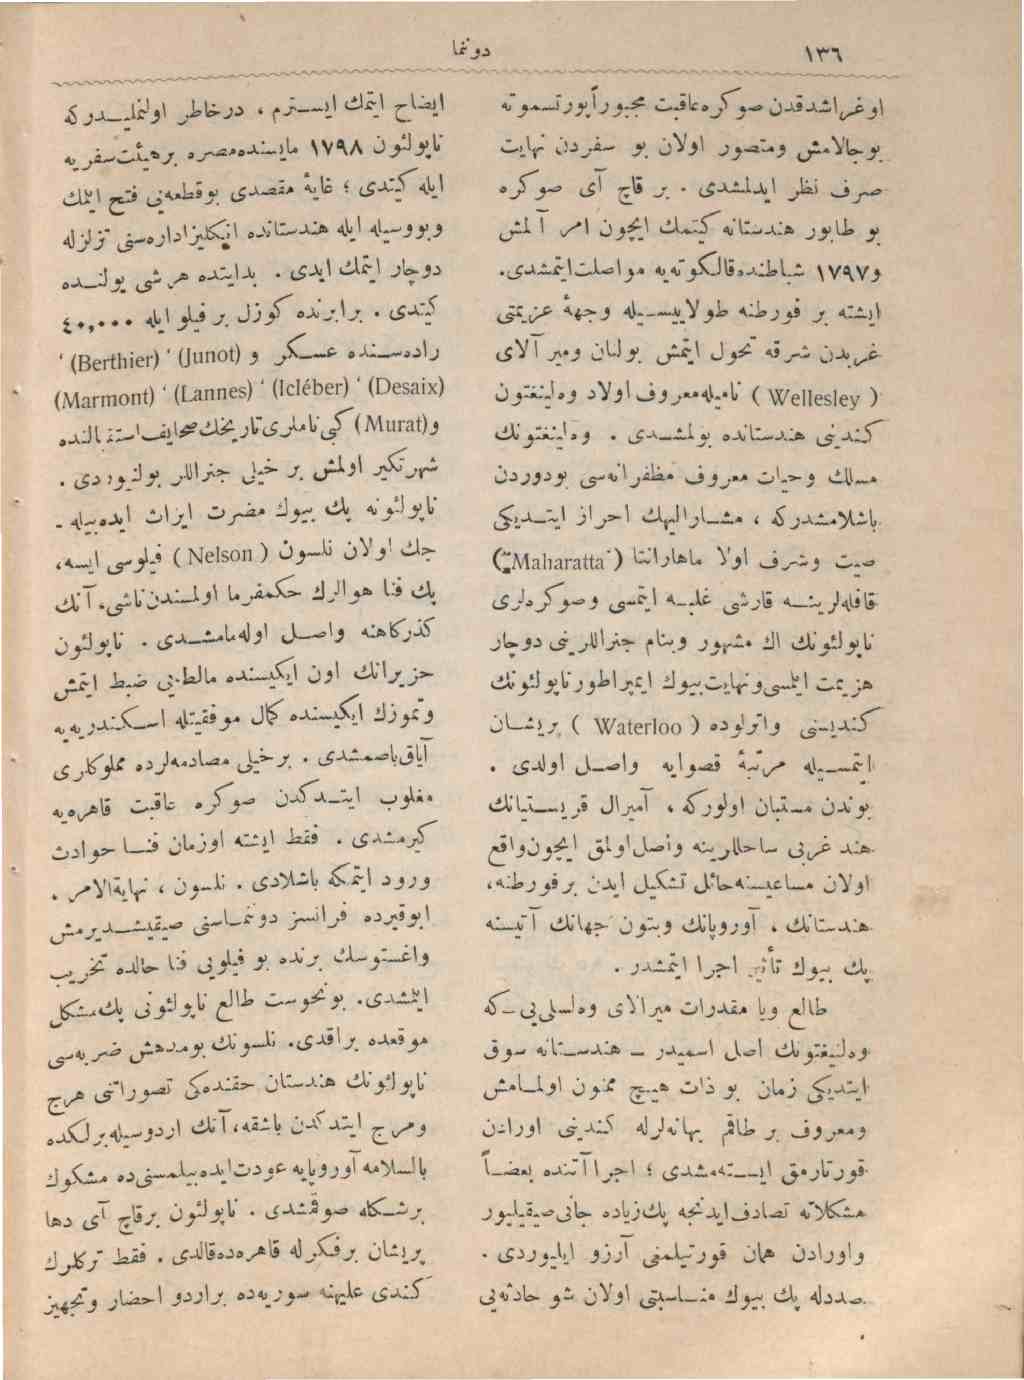 ١٣٦
دوننما
اوغراشدقدن صوكره عاقبت مجبوراً پورتسموته
بوجالامش ومتصور اولان بو سفردن نهایت
صرف نظر ایدلمشدی . بر قاچ آی صوكره
بو طابور هندستانه كیتمك ایچون امر آلمش
و١٧٩٧ شباطنده قالكوته یه مواصلت ایتمشدی.
ایشته بر فورطنه طولاییسیله وجههٔ عزیمتی
غربدن شرقه تحول ایتمش بولنان ومیر آلای
( Wellesley ) نامیله معروف اولاد وه لینغتون
كندینی هندستانده بولمشدی . وه لینغتونك
مسلك وحیات معروف مظفرانه سی بودوردن
باشلامشدركه ، مشارالیهك احراز ایتدیكی
صیت وشرف اولا ماهاراتتا ( Maharatta )
قافله لرینه قارشی غلبه ایتمسی وصوكره لری
ناپولئونك اك مشهور وبنام جنراللرینی دوچار
هزیمت ایلمسی ونهایت بیوك ایمپراطور ناپولئونك
كندیسنی واترلوده ( Waterloo ) پریشان
ایتمسیله مرتبهٔ قصوایه واصل اولدی .
بوندن مستبان اولوركه ، آمیرال قریستیانك
هند غربی ساحللرینه واصل اولمق ایچون واقع
اولان مساعیسنه حائل تشكیل ایدن بر فورطنه،
هندستانك ، آوروپانك وبتون جهانك آتیسنه
پك بیوك تأثیر اجرا ایتمشدر .
طالع ویا مقدرات میرالای وه لسلی یی ـ كه
وه لینغتونك اصل اسمیدر ـ هندستانه سوق
ایتدیكی زمان بو ذات هیچ ممنون اولمامش
ومعروف بر طاقم بهانه لرله كندینی اورادن
قورتارمق ایسته مشدی ؛ اجراآتنده بعضاً
مشكلاته تصادف ایدنجه پك زیاده جانی صیقیلیور
واورادن همان قورتیلمنی آرزو ایلیوردی .
صددله پك بیوك مناسبتی اولان شو حادثه یی
ایضاح ایتمك ایسترم ، درخاطر اولنملیدركه
ناپولئون ١٧٩٨ مایسنده مصره بر هیئت سفریه
ایله كیتدی ؛ غایهٔ مقصدی بوقطعه یی فتح ایتمك
وبووسیله ایله هندستانده انكلیز اداره سنی تزلزله
دوچار ایتمك ایدی . بدایتده هر شی یولنده
كیتدی . برابرنده كوزل بر فیلو ایله ٤٠,٠٠٠
راده سنده عسكر و (Junot) ، (Berthier) ،
(Desaix) ، (Icléber) ، (Lannes) ، (Marmont)
و(Murat) كبی ناملری تاریخك صحایف استقبالنده
شهرتكیر اولمش بر خیلی جنراللر بولنیوردی .
ناپولئونه پك بیوك مضرت ایراث ایده بیله ـ
جك اولان نلسون ( Nelson ) فیلوسی ایسه،
پك فنا هوالرك حكمفرما اولمسندن ناشی، آنك
كذركاهنه واصل اوله مامشدی . ناپولئون
حزیرانك اون ایكیسنده مالطه یی ضبط ایتمش
وتموزك ایكیسنده كمال موفقیتله اسكندریه یه
آیاق باصمشدی . برخیلی مصادمه لرده مملوكلری
مغلوب ایتدكدن صوكره عاقبت قاهره یه
كیرمشدی . فقط ایشته اوزمان فنا حوادث
ورود ایتمكه باشلادی . نلسون ، نهایة الامر ،
ابوقیرده فرانسز دوننماسنی صیقیشدیرمش
واغستوسك برنده بو فیلویی فنا حالده تخریب
ایتمشدی. بونحوست طالع ناپولئونی پك مشكل
موقعده براقدی. نلسونك بومدهش ضربه سی
ناپولئونك هندستان حقنده كی تصوراتنی هرج
ومرج ایتدكدن باشقه، آنك اردوسیله برلكده
بالسلامه آوروپایه عودت ایده بیلمسنی ده مشكوك
برشكله صوقمشدی . ناپولئون برقاچ آی دها
پریشان برفكرله قاهره ده قالدی . فقط تركلرك
كندی علیهنه سوریه ده براردو احضار وتجهیز